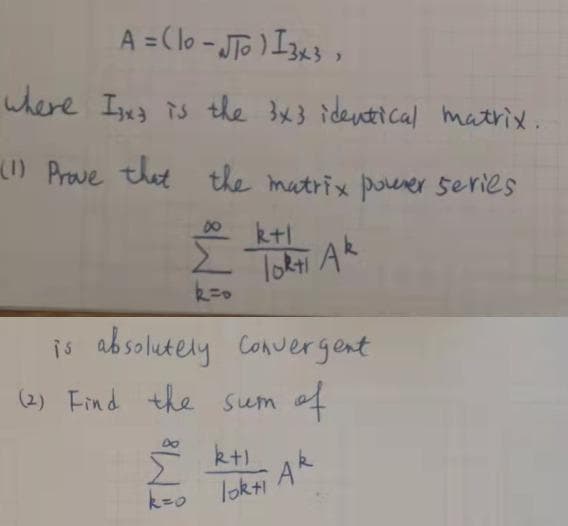 A = (10 - √10) I₃ₓ₃ ,
where I₃ₓ₃ is the 3×3 identical matrix.
(1) Prove that the matrix power series
∑_{k=0}^{∞} \frac{k+1}{10^{k+1}} A^k
is absolutely convergent
(2) Find the sum of
∑_{k=0}^{∞} \frac{k+1}{10^{k+1}} A^k